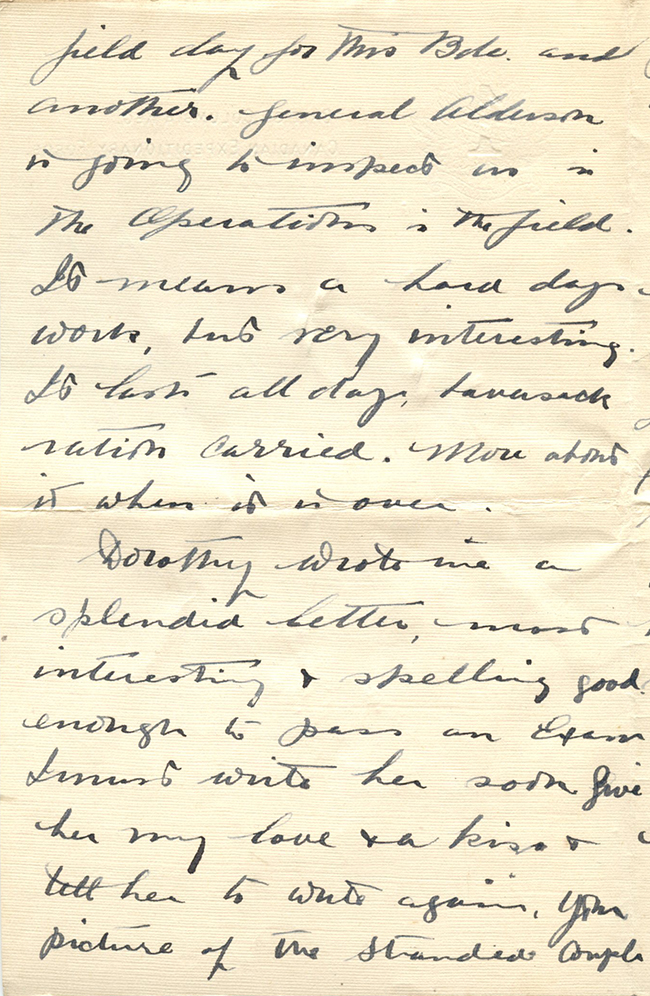 field day for this Bde. and
another. General Alderson
is going to inspect us in
the Operations in the field.
It means a hard days
work, but very interesting.
It lasts all day, haversack
ration carried. More about
it when it is over.
Dorothy wrote me a
splendid letter, most
interesting & spelling good
enough to pass an Exam
I must write her soon Give
her my love & a kiss &
tell her to write again, Your
picture of the stranded couple
CANADIAN EXPEDITIONARY